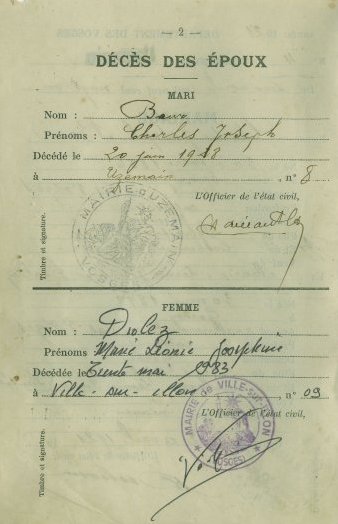 — 2 —
DÉCÈS DES ÉPOUX
MARI
Nom :
Prénoms : Charles Joseph
Décédé le 20 juin 1948
à Uzemain, n° 8
L'Officier de l'état civil,
MAIRIE d'UZEMAIN
Timbre et signature.
FEMME
Nom : Diolez
Prénoms Marie Léonie Joséphine
Décédée le trente mai 1983
à Ville-sur-illon, n° 09
L'Officier de l'état civil,
MAIRIE de VILLE-sur-ILLON
(VOSGES)
Timbre et signature.